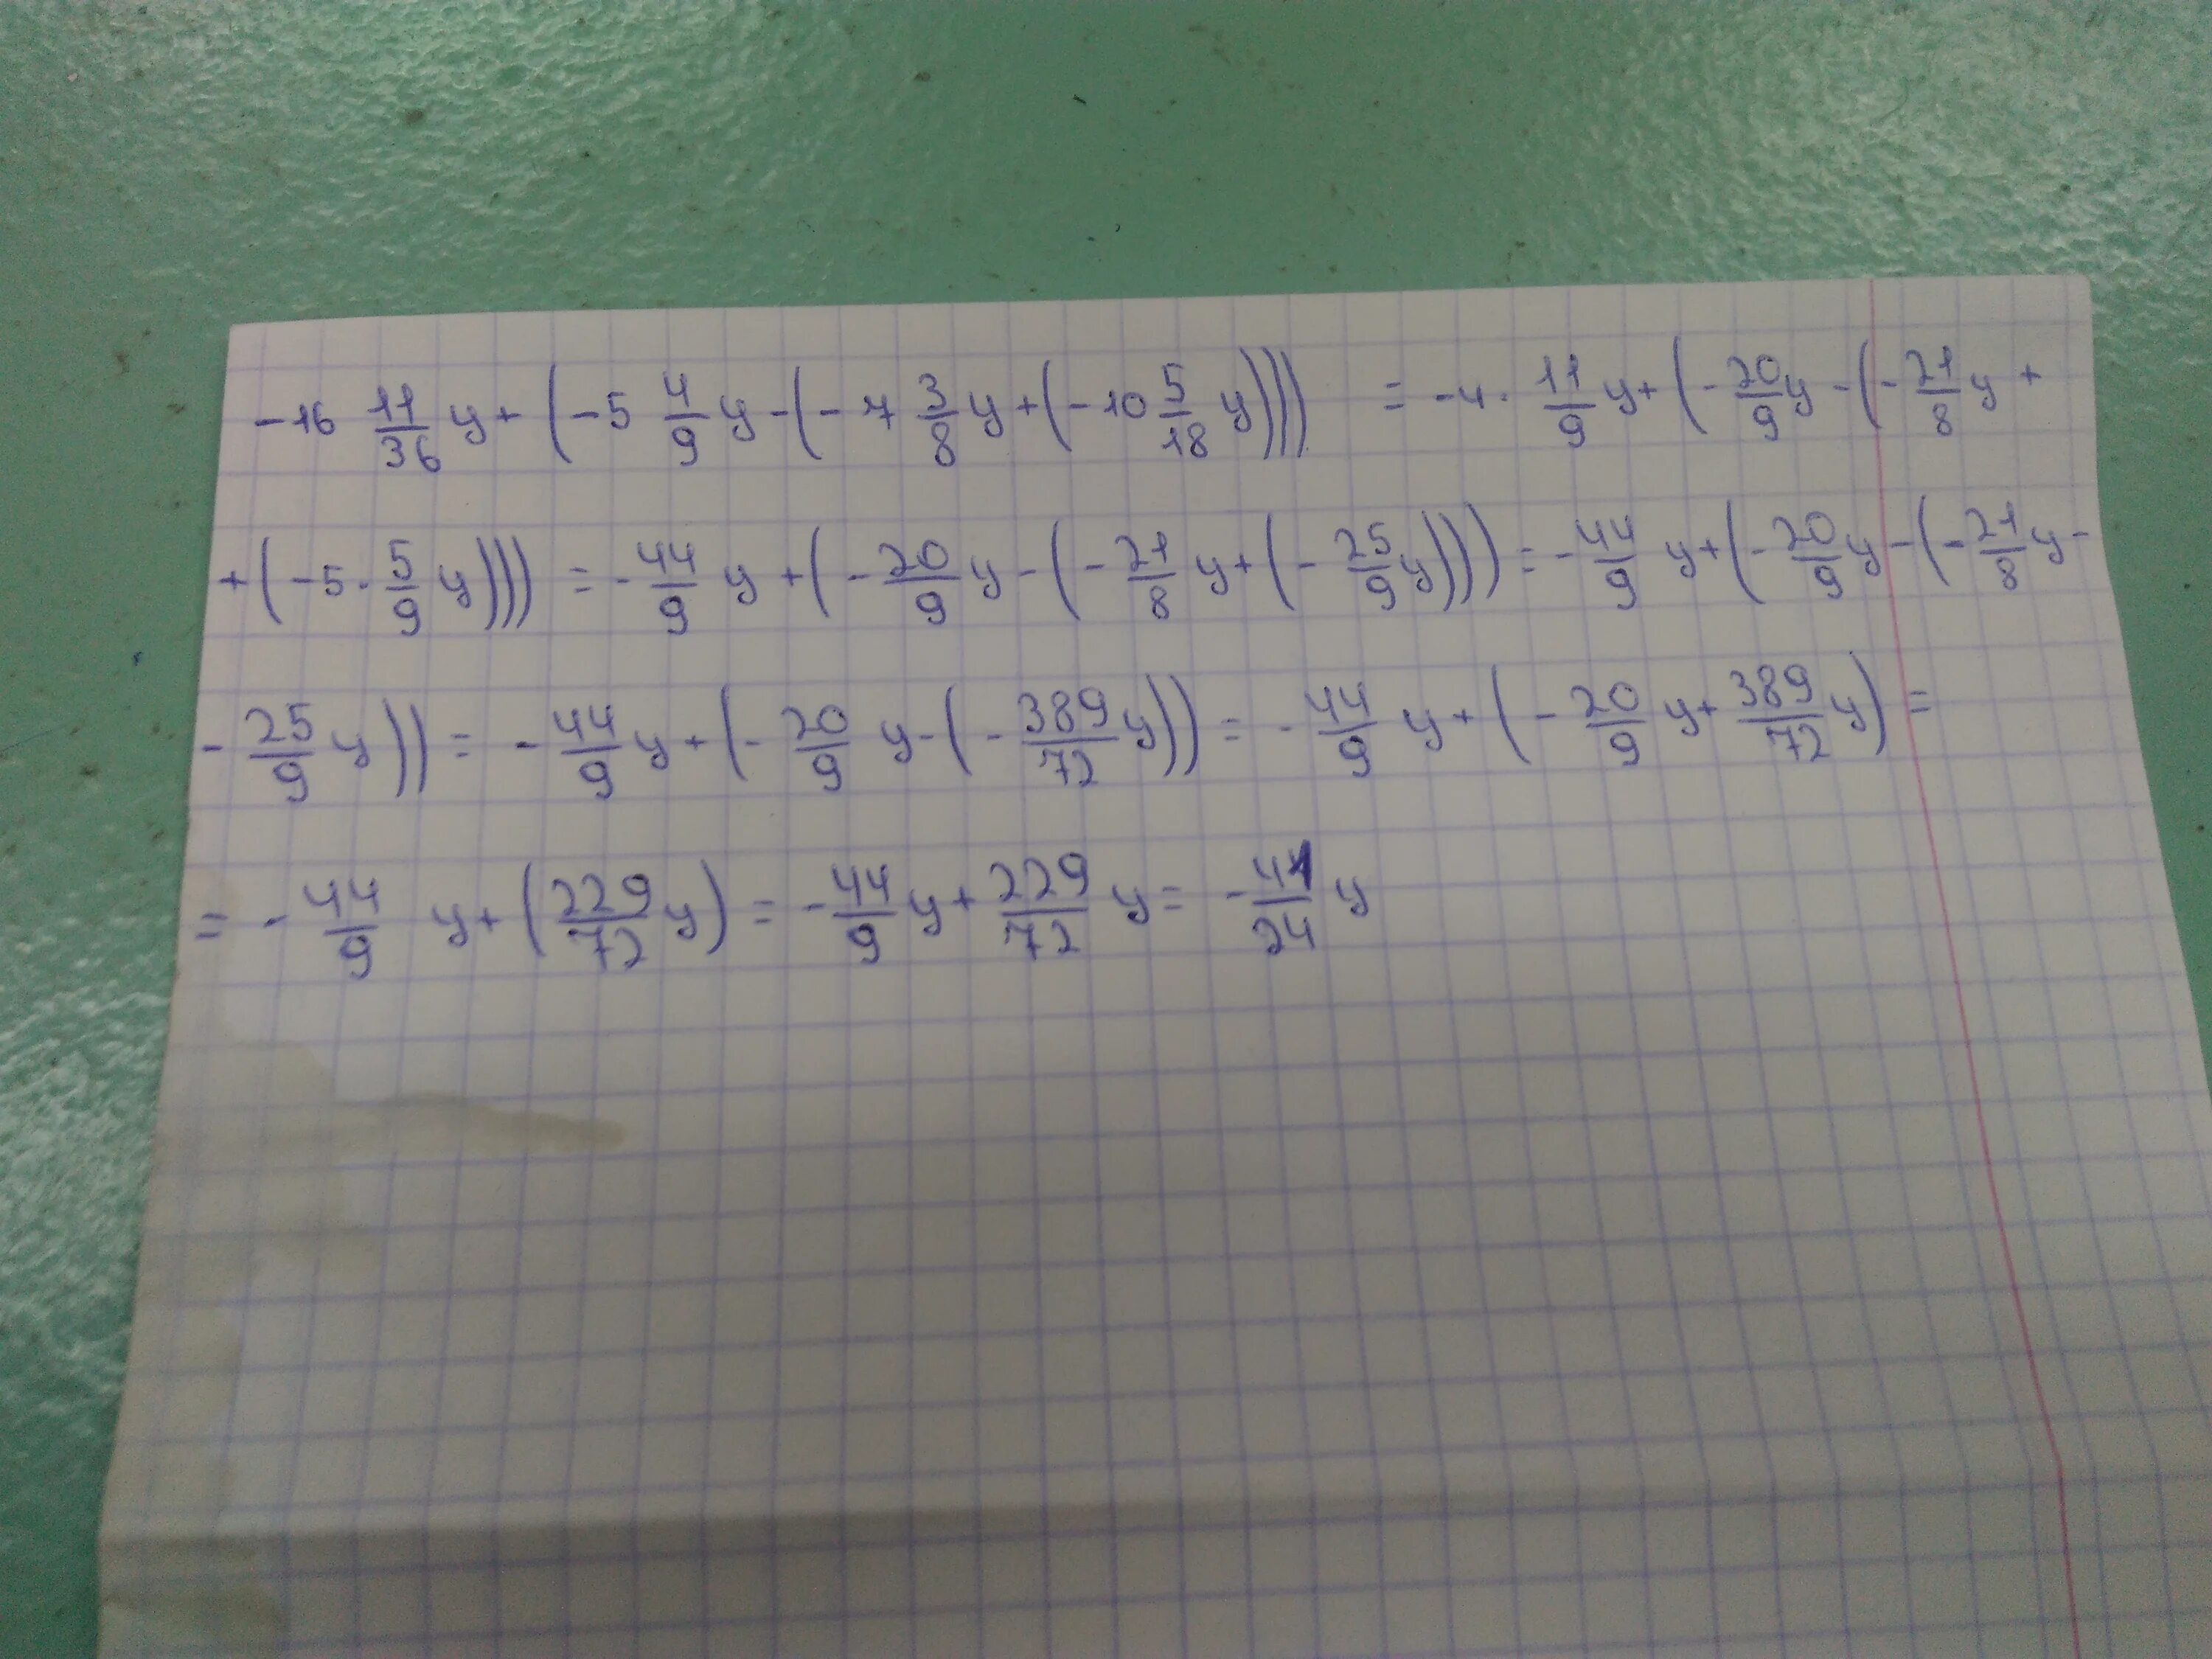 -16 11/36 y + (-5 4/9 y - (-7 3/8 y + (-10 5/18 y))) = -4 · 11/9 y + (-20/9 y - (-21/8 y +
+ (-5 · 5/9 y))) = -44/9 y + (-20/9 y - (-21/8 y + (-25/9 y))) = -44/9 y + (-20/9 y - (-21/8 y -
- 25/9 y)) = -44/9 y + (-20/9 y - (-389/72 y)) = -44/9 y + (-20/9 y + 389/72 y) =
= -44/9 y + (229/72 y) = -44/9 y + 229/72 y = -41/24 y